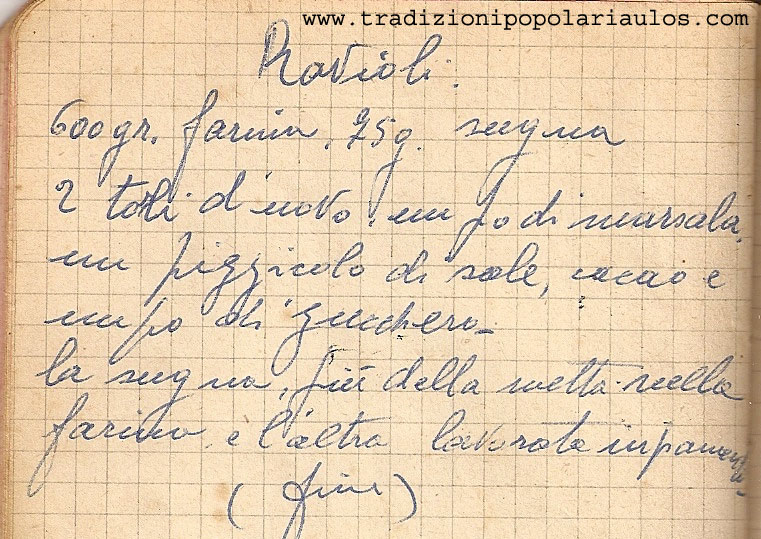 www.tradizionipopolariaulos.com
Ravioli.
600gr. farina, 75g. sugna
2 torli d'uovo, un po di marsala,
un pizzicolo di sale, cacao e
un po di zucchero-
la sugna, più della metta nella
farina e l'altra lavorata
( fine )